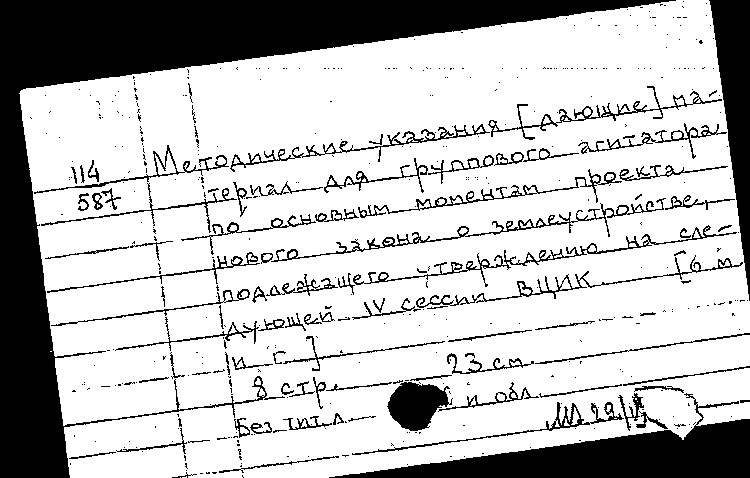 114
587
Методические указания [дающие] ма-
териал для группового агитатора
по основным моментам проекта
нового закона о землеустройстве,
подлежащего утверждению на сле-
дующей IV сессии ВЦИК. [б м
и г.]
8 стр. 23 см.
Без тит. л. и обл.